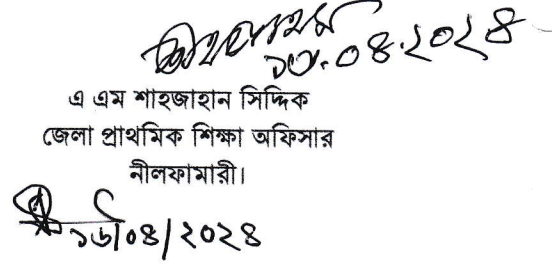 ১৬.০৪.২০২৪
এ এম শাহজাহান সিদ্দিক
জেলা প্রাথমিক শিক্ষা অফিসার
নীলফামারী।
১৬/০৪/২০২৪